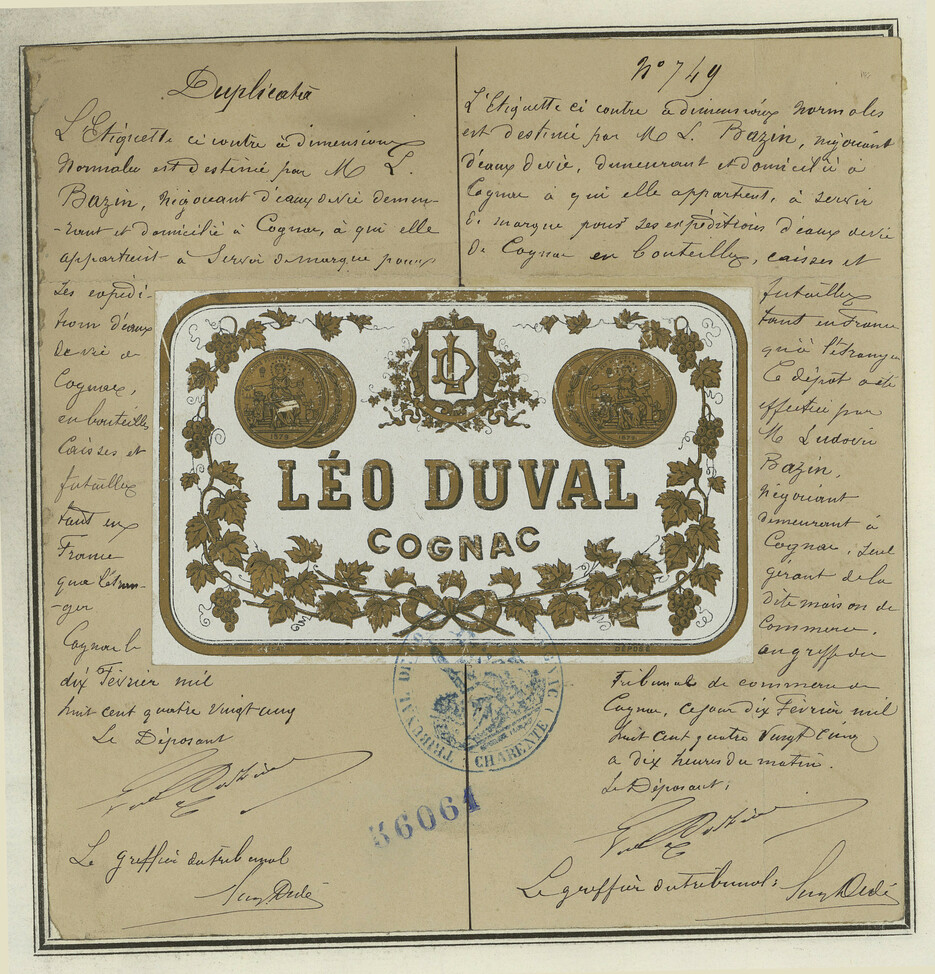 Duplicata
L'Etiquette ci contre à dimensions
Normales est destinée par M L.
Bazin, Négociant d'eaux de vie demeu-
-rant et domicilié à Cognac, à qui elle
appartient à servir de marque pour
ses expédi-
tions d'eaux
de vie de
Cognac,
en bouteilles
Caisses et
futailles
tant en
France
qu'à l'étran-
-ger
Cognac le
dix Février mil
huit cent quatre vingt cinq
Le Déposant
Le greffier du tribunal
N° 749
L'Etiquette ci contre à dimensions Normales
est destinée par M L. Bazin, négociant
d'eaux de vie, demeurant et domicilié à
Cognac à qui elle appartient, à servir
de marque pour ses expéditions d'eaux de vie
de Cognac en bouteilles, caisses et
futailles
tant en France
qu'à l'étranger
Ce dépôt a été
effectué par
M Ludovic
Bazin,
Négociant
demeurant à
Cognac, seul
gérant de la
dite maison de
Commerce.
au greffe du
Tribunal de commerce de
Cognac, ce jour dix Février mil
huit cent quatre vingt cinq
à dix heures du matin.
Le Déposant,
Le greffier du tribunal:
1878
1878
LÉO DUVAL
COGNAC
DÉPOSÉ
TRIBUNAL DE
CHARENTE
36061